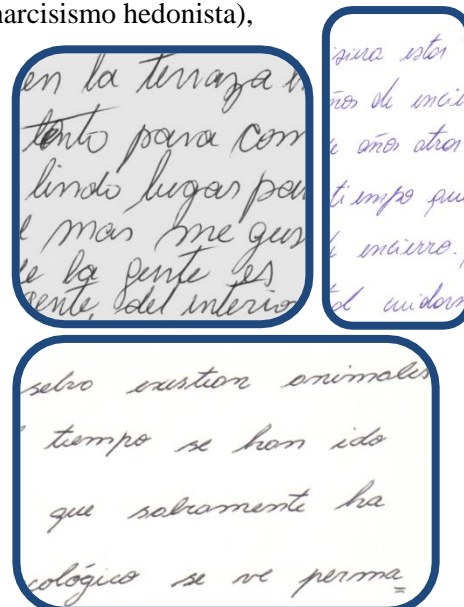 narcisismo hedonista),
en la terraza
tento para com
lindo lugar par
mas me gus
e la gente es
gente, del interior
siera estar
ños de encie
e años atras
tiempo que
de encierro.
cuidarn
selva existian animales
tiempo se han ido
que solramente ha
cológico se ve perma